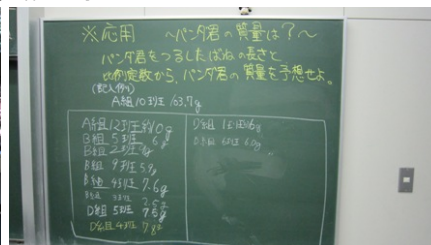 ※応用 ~パンダ君の質量は?~
パンダ君をつるしたばねの長さと
比例定数から、パンダ君の質量を予想せよ。
(記入例)
A組10班 163.7g
A組12班 約10g
B組 5班 6g
B組 2班
B組 9班 5.9g
B組 4班 7.6g
B組 3班
D組 5班 7.5g
D組 4班 7.8g
D組 1班
D組 6班 6.0g